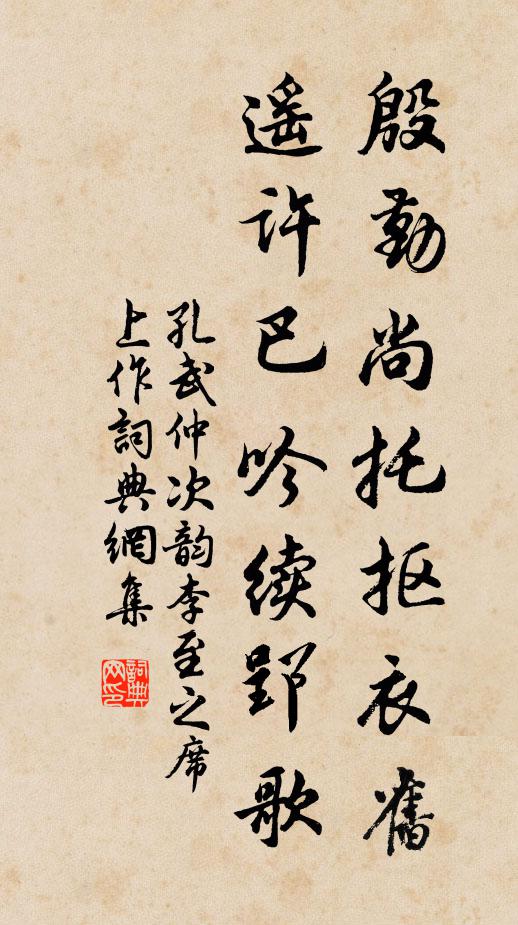 殷勤尚托抠衣舊
遥许巴吟续郢歌
孔武仲次韵李至之席
上作詞典網集
詞典网印